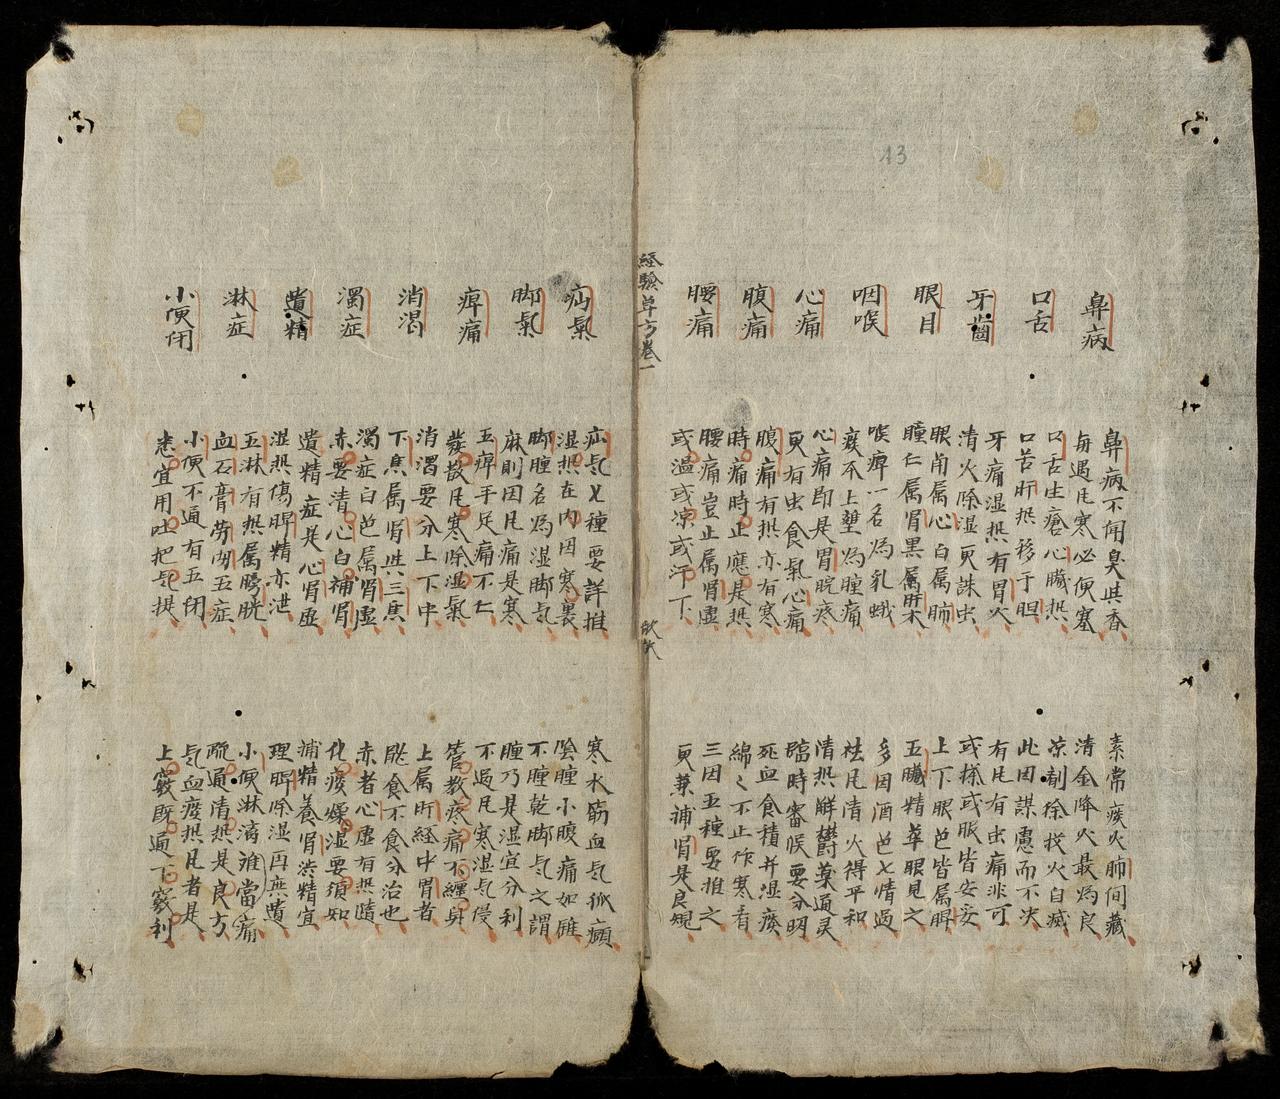 鼻病
鼻病不聞臭與香
素常痰火肺間藏
每遇風寒必便塞
清金降火最為良
口舌
口舌生瘡心臟热
凉劑徐投火自滅
口苦肝热移于胆
此因謀慮而不决
牙齒
牙痛湿热有胃火
有風有虫痛非可
清火除湿更誅虫
或搽或服皆安妥
眼目
眼角属心白属肺
上下眼色皆属脾
瞳仁属肾黑属肝木
五臟精華眼見之
咽喉
喉痺一名為乳蛾
多因酒色七情過
痰不上壅為腫痛
祛風清火得平和
心痛
心痛即是胃脘疼
清热解欝藥通灵
更有虫食氣心痛
臨時審候要分明
腹痛
腹痛有热亦有寒
死血食積并湿痰
時痛時止應是热
綿〻不止作寒看
腰痛
腰痛豈止属肾虚
三因五種要推之
或温或凉或汗下
更兼補肾是良規
經驗单方卷一
疝氣
疝氣七種要詳推
寒水筋血氣狐㿗
湿热在内因寒裹
陰腫小腹痛如
脚氣
脚腫名為湿脚氣
不腫乾脚氣之謂
麻則因風痛是寒
腫乃是湿宜分利
痺痛
五痺手足痛不仁
不過風寒湿氣侵
發散風寒除湿氣
管教疼痛不纏身
消渴
消渴要分上下中
上属肝経中胃者
下焦属肾共三焦
能食不食分治也
濁症
濁症白色属肾虚
赤者心虚有热隨
赤要清心白補肾
化痰燥湿要須知
遺精
遺精症是心肾虚
補精養肾精宜
湿热傷脾精亦泄
理脾除湿再無遺
淋症
五淋有热属膀胱
小便淋漓當痛
血石膏劳肉五症
疏通清热是良方
小便闭
小便不通有五闭
氣血痰热風者是
悉宜用吐把氣提
上竅既通下竅利